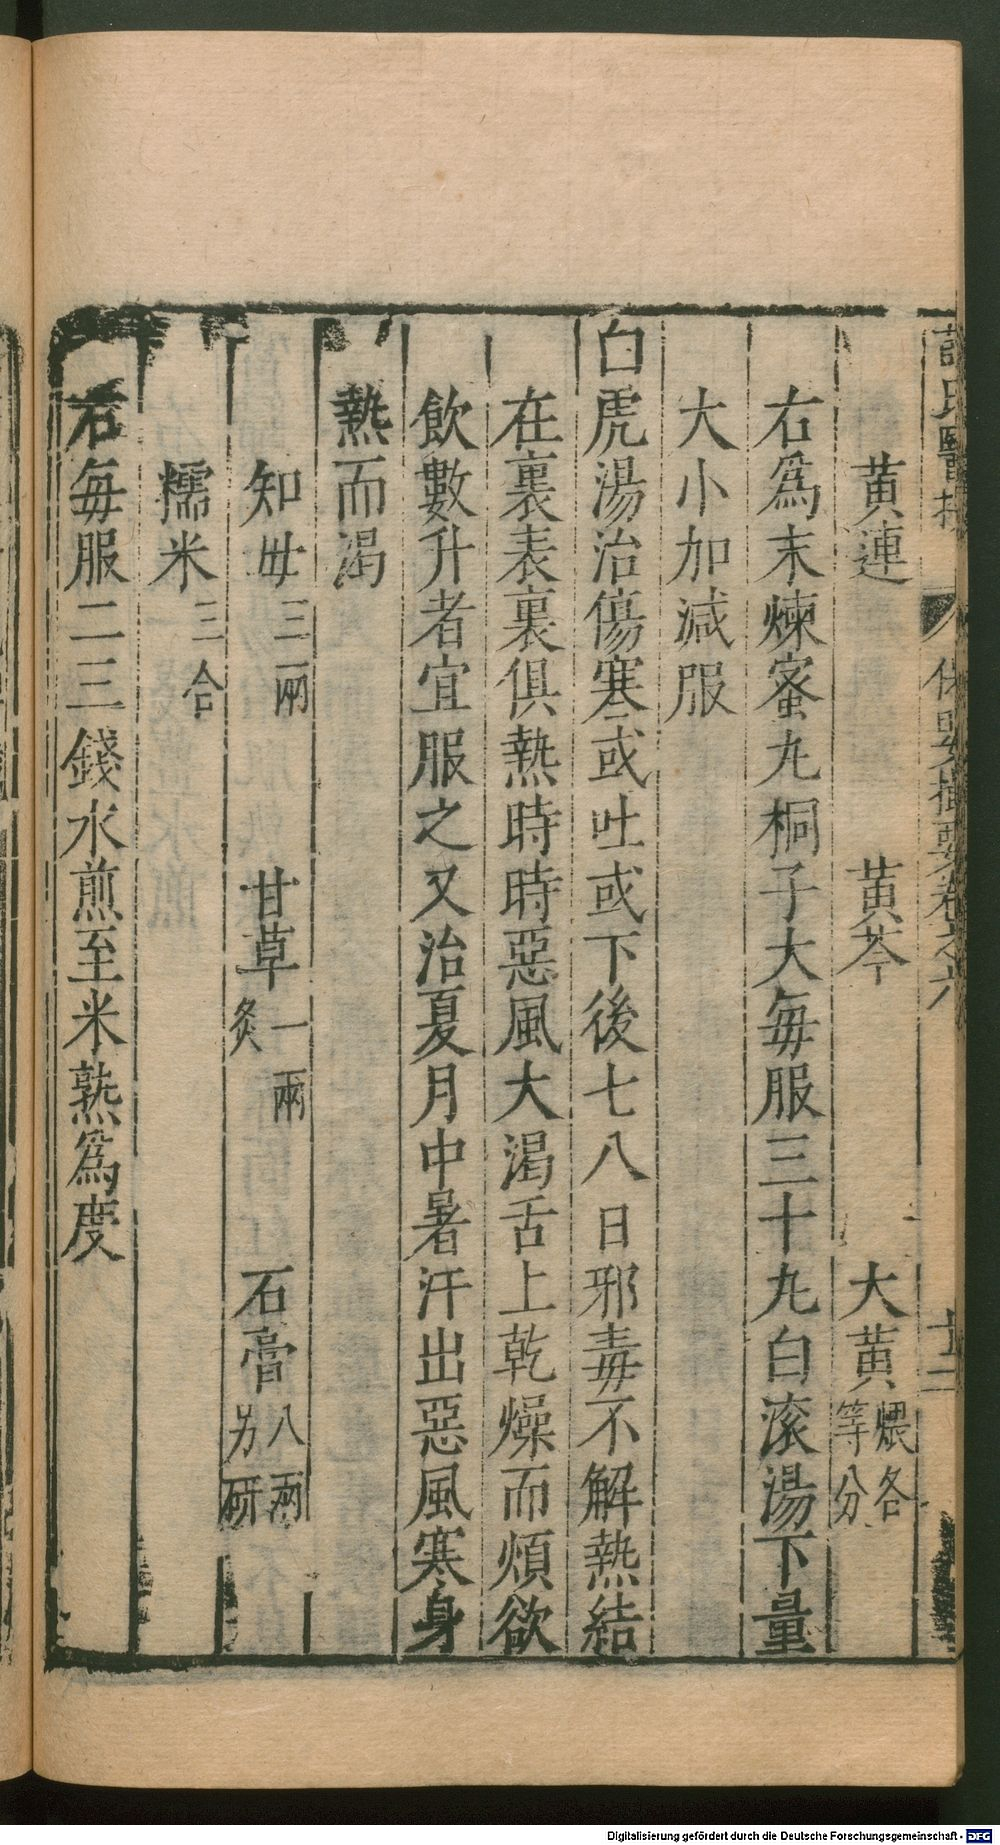 黃連　黃芩　大黃煨各等分
右爲末煉蜜丸桐子大每服三十丸白滚湯下量
大小加減服
白虎湯治傷寒或吐或下後七八日邪毒不解熱結
在裏表裏俱熱時時惡風大渴舌上乾燥而煩欲
飲數升者宜服之又治夏月中暑汗出惡風寒身
熱而渴
知母三兩　甘草一兩炙　石膏八兩另研
糯米三合
右每服二三錢水煎至米熟爲度
保嬰撮要卷之六
Digitalisierung gefördert durch die Deutsche Forschungsgemeinschaft - DFG